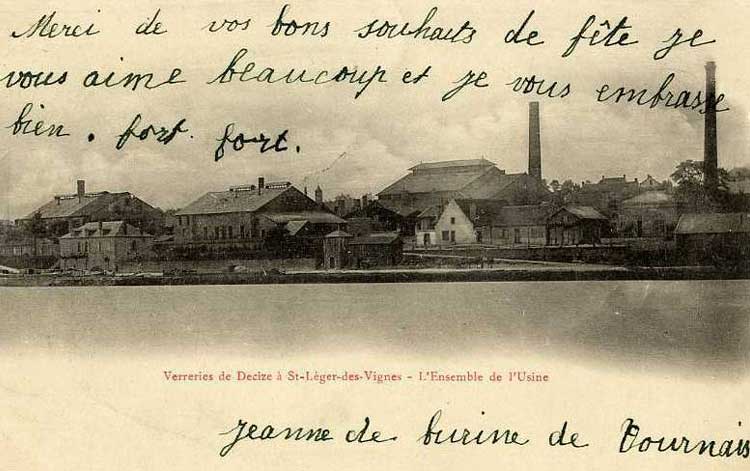 Merci de vos bons souhaits de fête je
vous aime beaucoup et je vous embrasse
bien. fort. fort.
Verreries de Decize à St-Léger-des-Vignes - L'Ensemble de l'Usine
jeanne de burine de Tournais